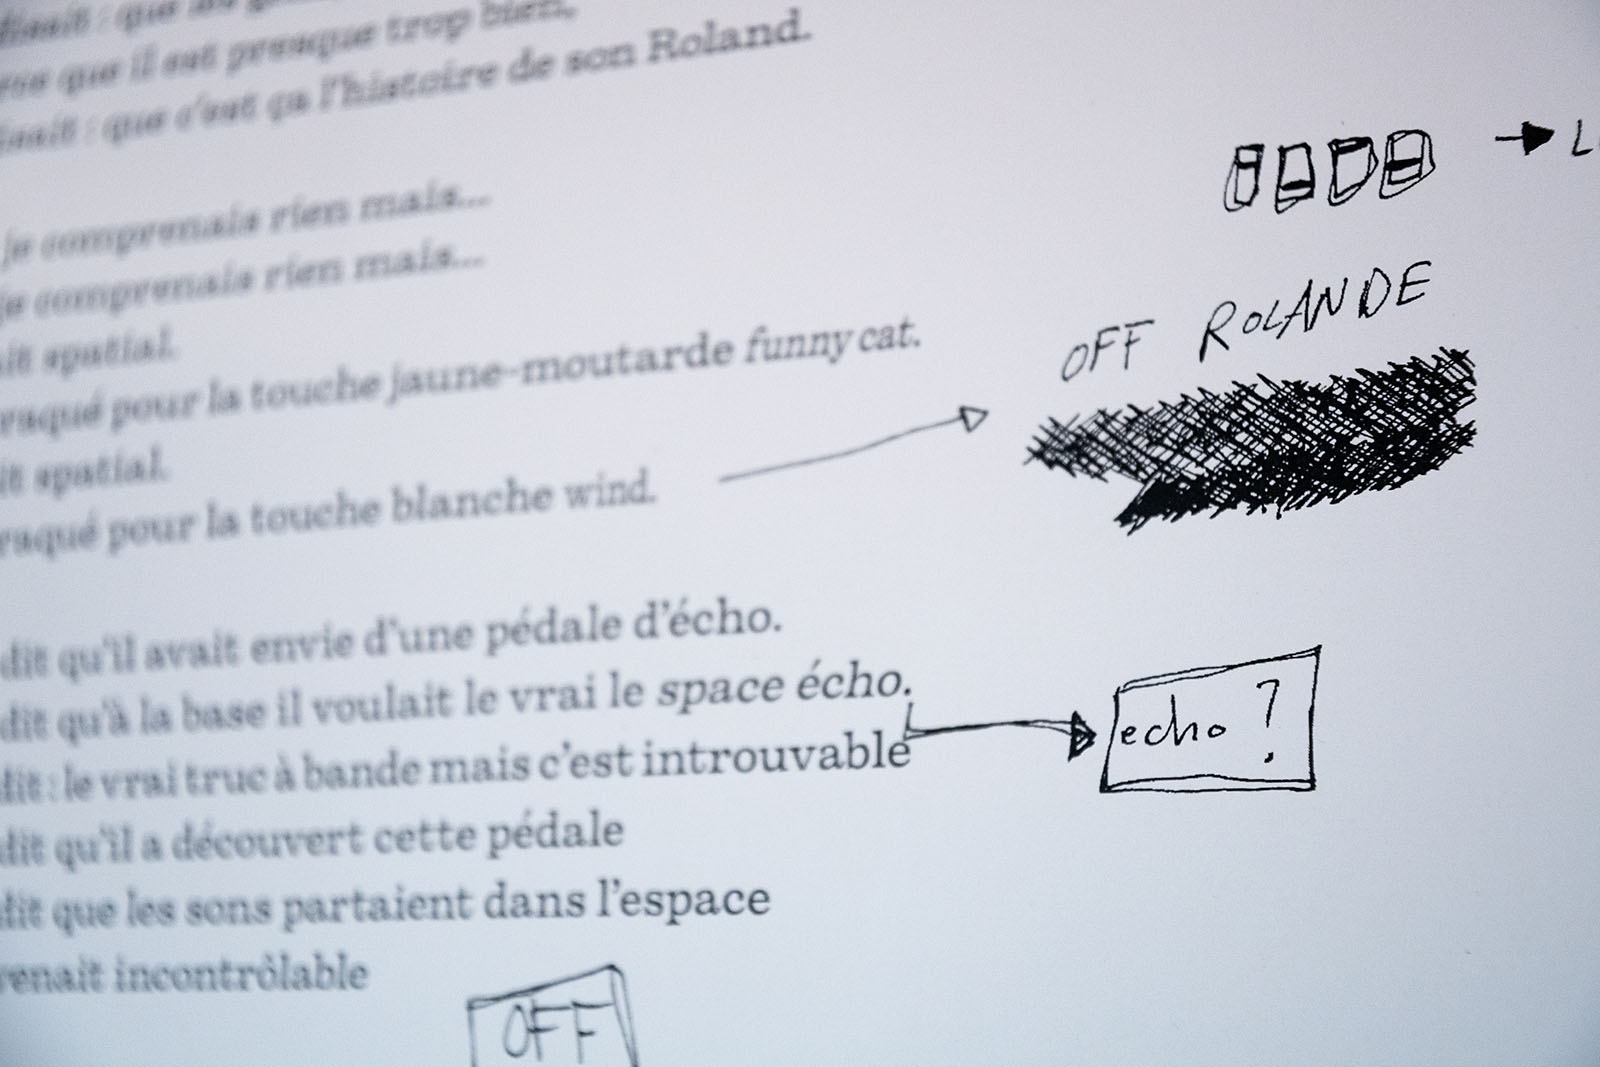 que il est presque trop bien,
: que c'est ça l'histoire de son Roland.
je comprenais rien mais...
je comprenais rien mais...
spatial.
pour la touche jaune-moutarde funny cat.
spatial.
pour la touche blanche wind.
dit qu'il avait envie d'une pédale d'écho.
dit qu'à la base il voulait le vrai le space écho.
dit : le vrai truc à bande mais c'est introuvable
dit qu'il a découvert cette pédale
dit que les sons partaient dans l'espace
incontrôlable
OFF ROLANDE
echo ?
OFF